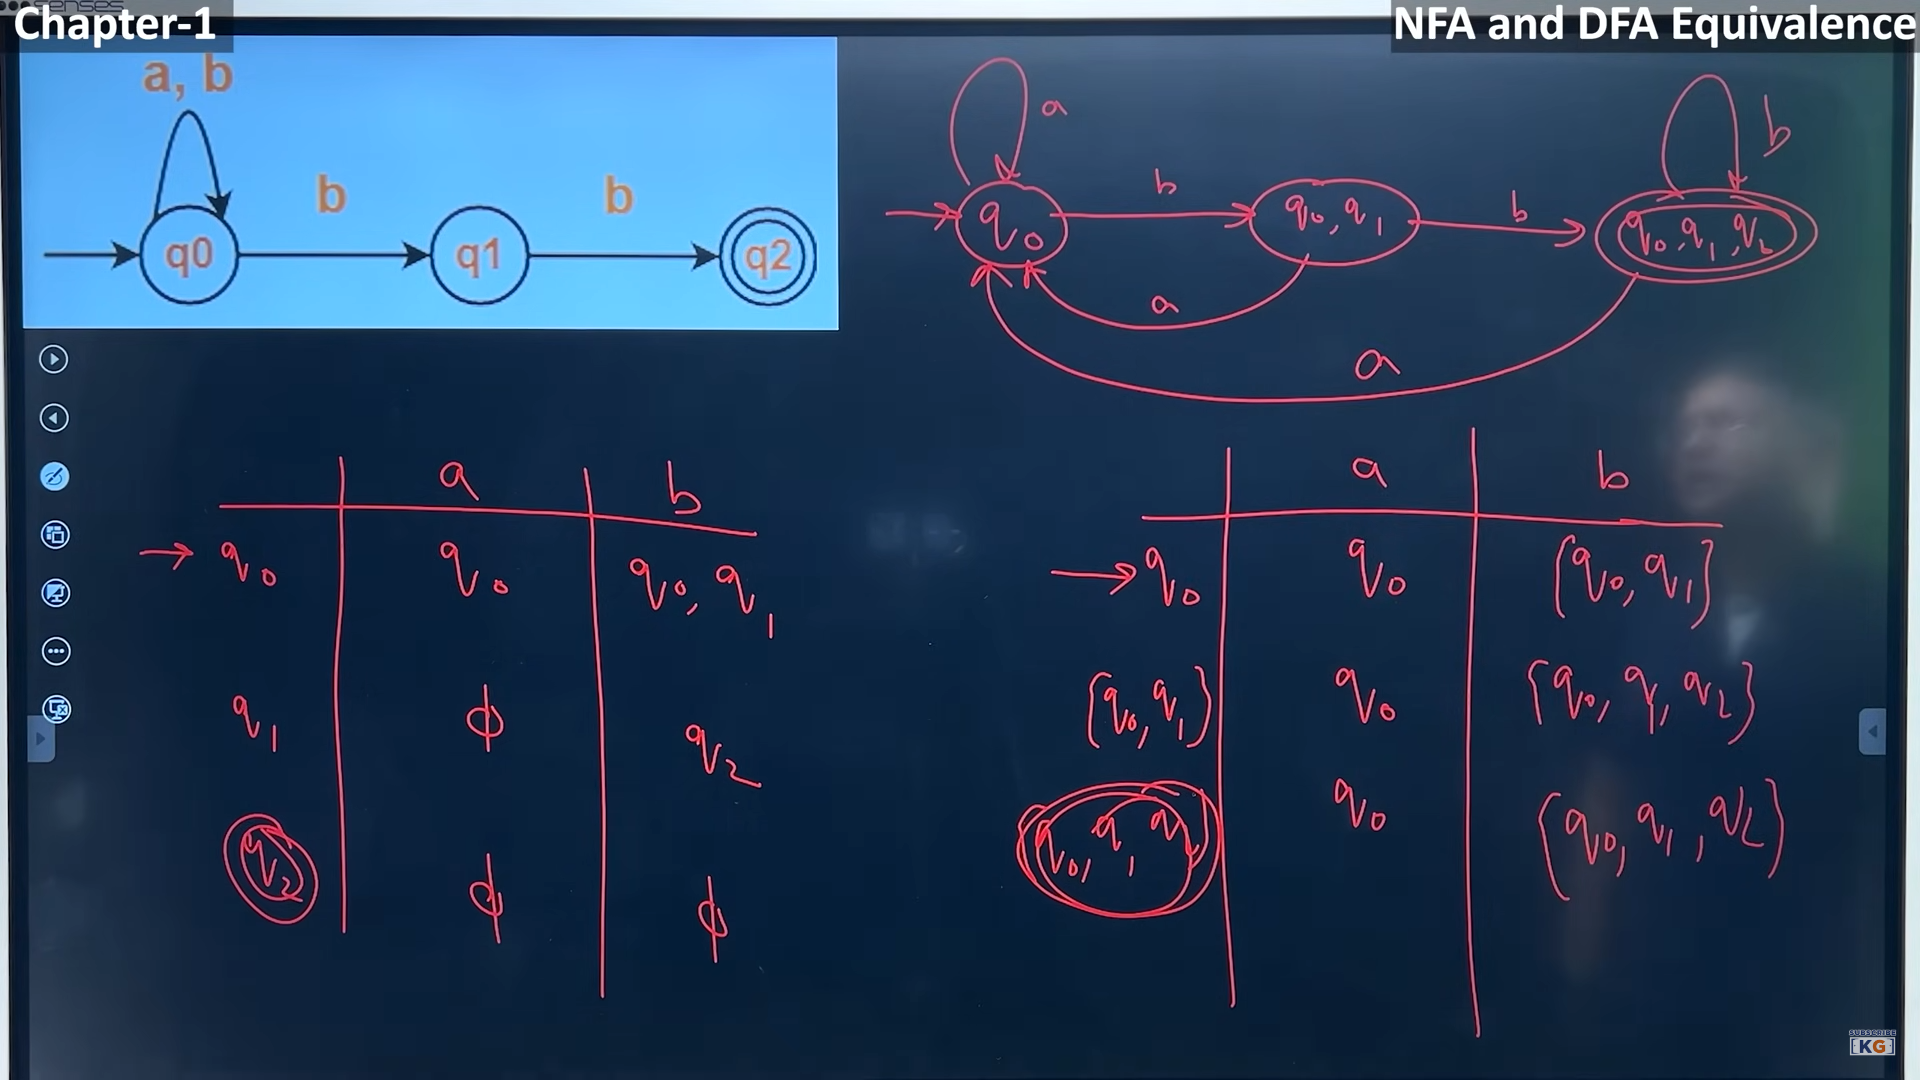 Chapter-1
NFA and DFA Equivalence
a, b
b
b
q0
q1
q2
a
b
b
b
q0
q0, q1
q0, q1, q2
a
a
a
b
→ q0
q0
q0, q1
q1
ϕ
q2
q2
ϕ
ϕ
a
b
→ q0
q0
{q0, q1}
{q0, q1}
q0
{q0, q1, q2}
q0, q1, q2
q0
{q0, q1, q2}
SUBSCRIBE
[KG]